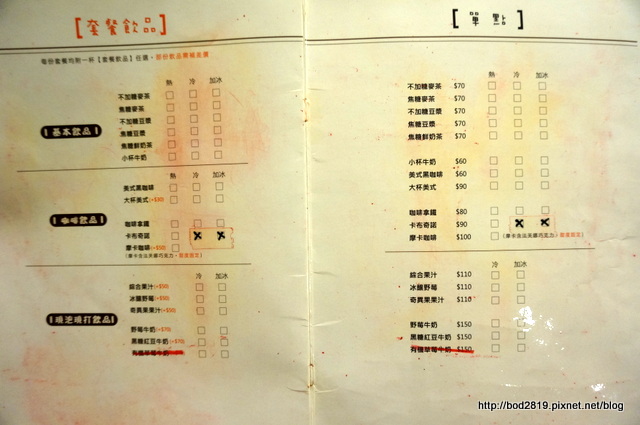 [套餐飲品]
每份套餐均附一杯【套餐飲品】任選，部份飲品需補差價
熱 冷 加冰
不加糖麥茶
焦糖麥茶
不加糖豆漿
[基本飲品]
焦糖豆漿
焦糖鮮奶茶
小杯牛奶
熱 冷 加冰
美式黑咖啡
大杯美式(+30)
[咖啡飲品]
咖啡拿鐵
卡布奇諾
摩卡咖啡(+50)
冷 加冰
綜合果汁(+50)
冰釀野莓(+50)
奇異果果汁(+50)
[噴泡噴打飲品]
野莓牛奶(+70)
黑糖紅豆牛奶(+70)
有機草莓牛奶
[單點]
熱 冷 加冰
不加糖麥茶 $70
焦糖麥茶 $70
不加糖豆漿 $70
焦糖豆漿 $70
焦糖鮮奶茶 $70
小杯牛奶 $60
美式黑咖啡 $60
大杯美式 $90
咖啡拿鐵 $80
卡布奇諾 $90
摩卡咖啡 $100
冷 加冰
綜合果汁 $110
冰釀野莓 $110
奇異果果汁 $110
野莓牛奶 $150
黑糖紅豆牛奶 $150
有機草莓牛奶 $150
http://bod2819.pixnet.net/blog